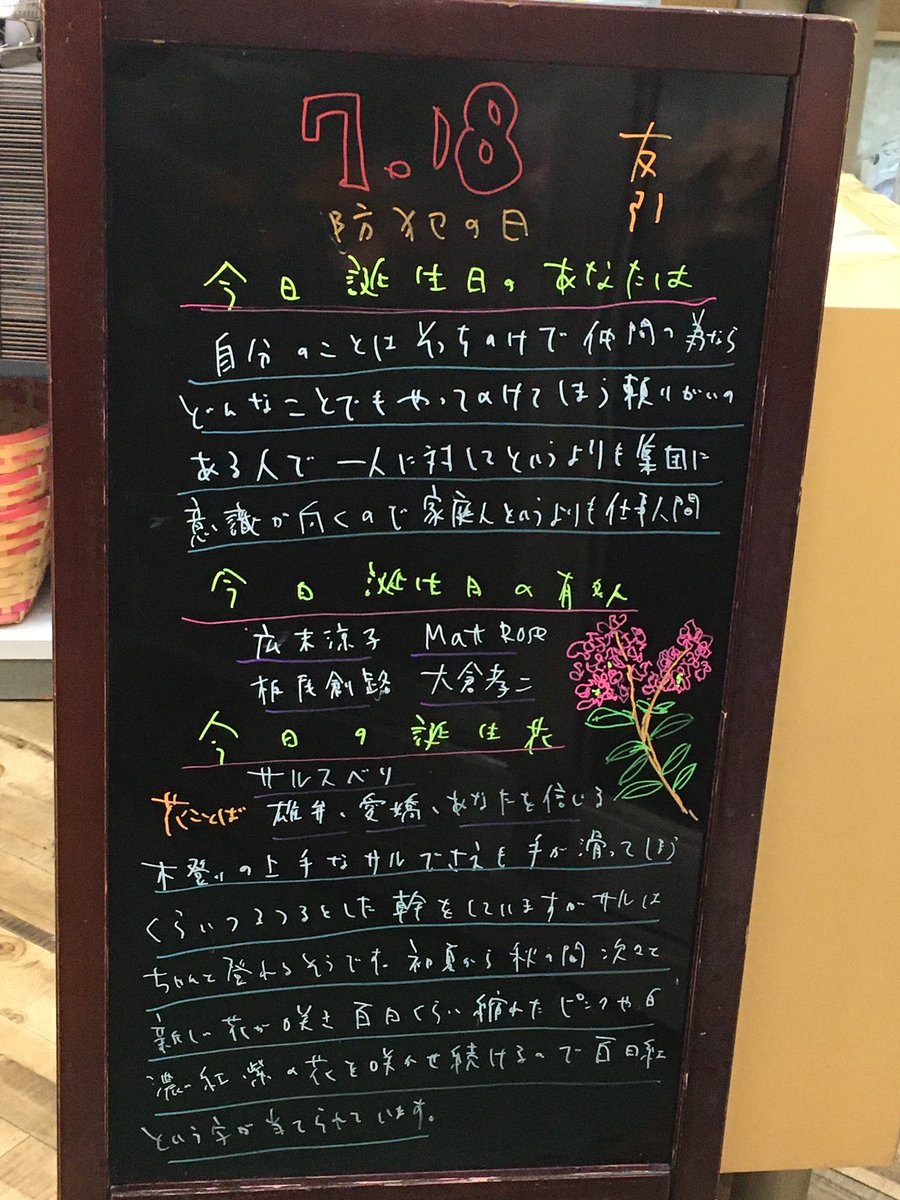 7.18
友引
防犯の日
今日誕生日のあなたは
自分のことはそっちのけで仲間の為なら
どんなことでもやってのけてしまう頼りがいの
ある人で一人に対してというよりも集団に
意識が向くので家庭人というよりも仕事人間
今日誕生日の有名人
広末涼子 Matt Rose
板尾創路 大倉孝二
今日の誕生花
サルスベリ
花ことば 雄弁、愛嬌、あなたを信じる
木登りの上手なサルでさえも手が滑ってしまう
くらいつるつるとした幹をしていますがサルは
ちゃんと登れるそうです。初夏から秋の間次々と
新しい花が咲き百日くらい縮れたピンクや白
濃い紅紫の花を咲かせ続けるので百日紅
という字が当てられています。